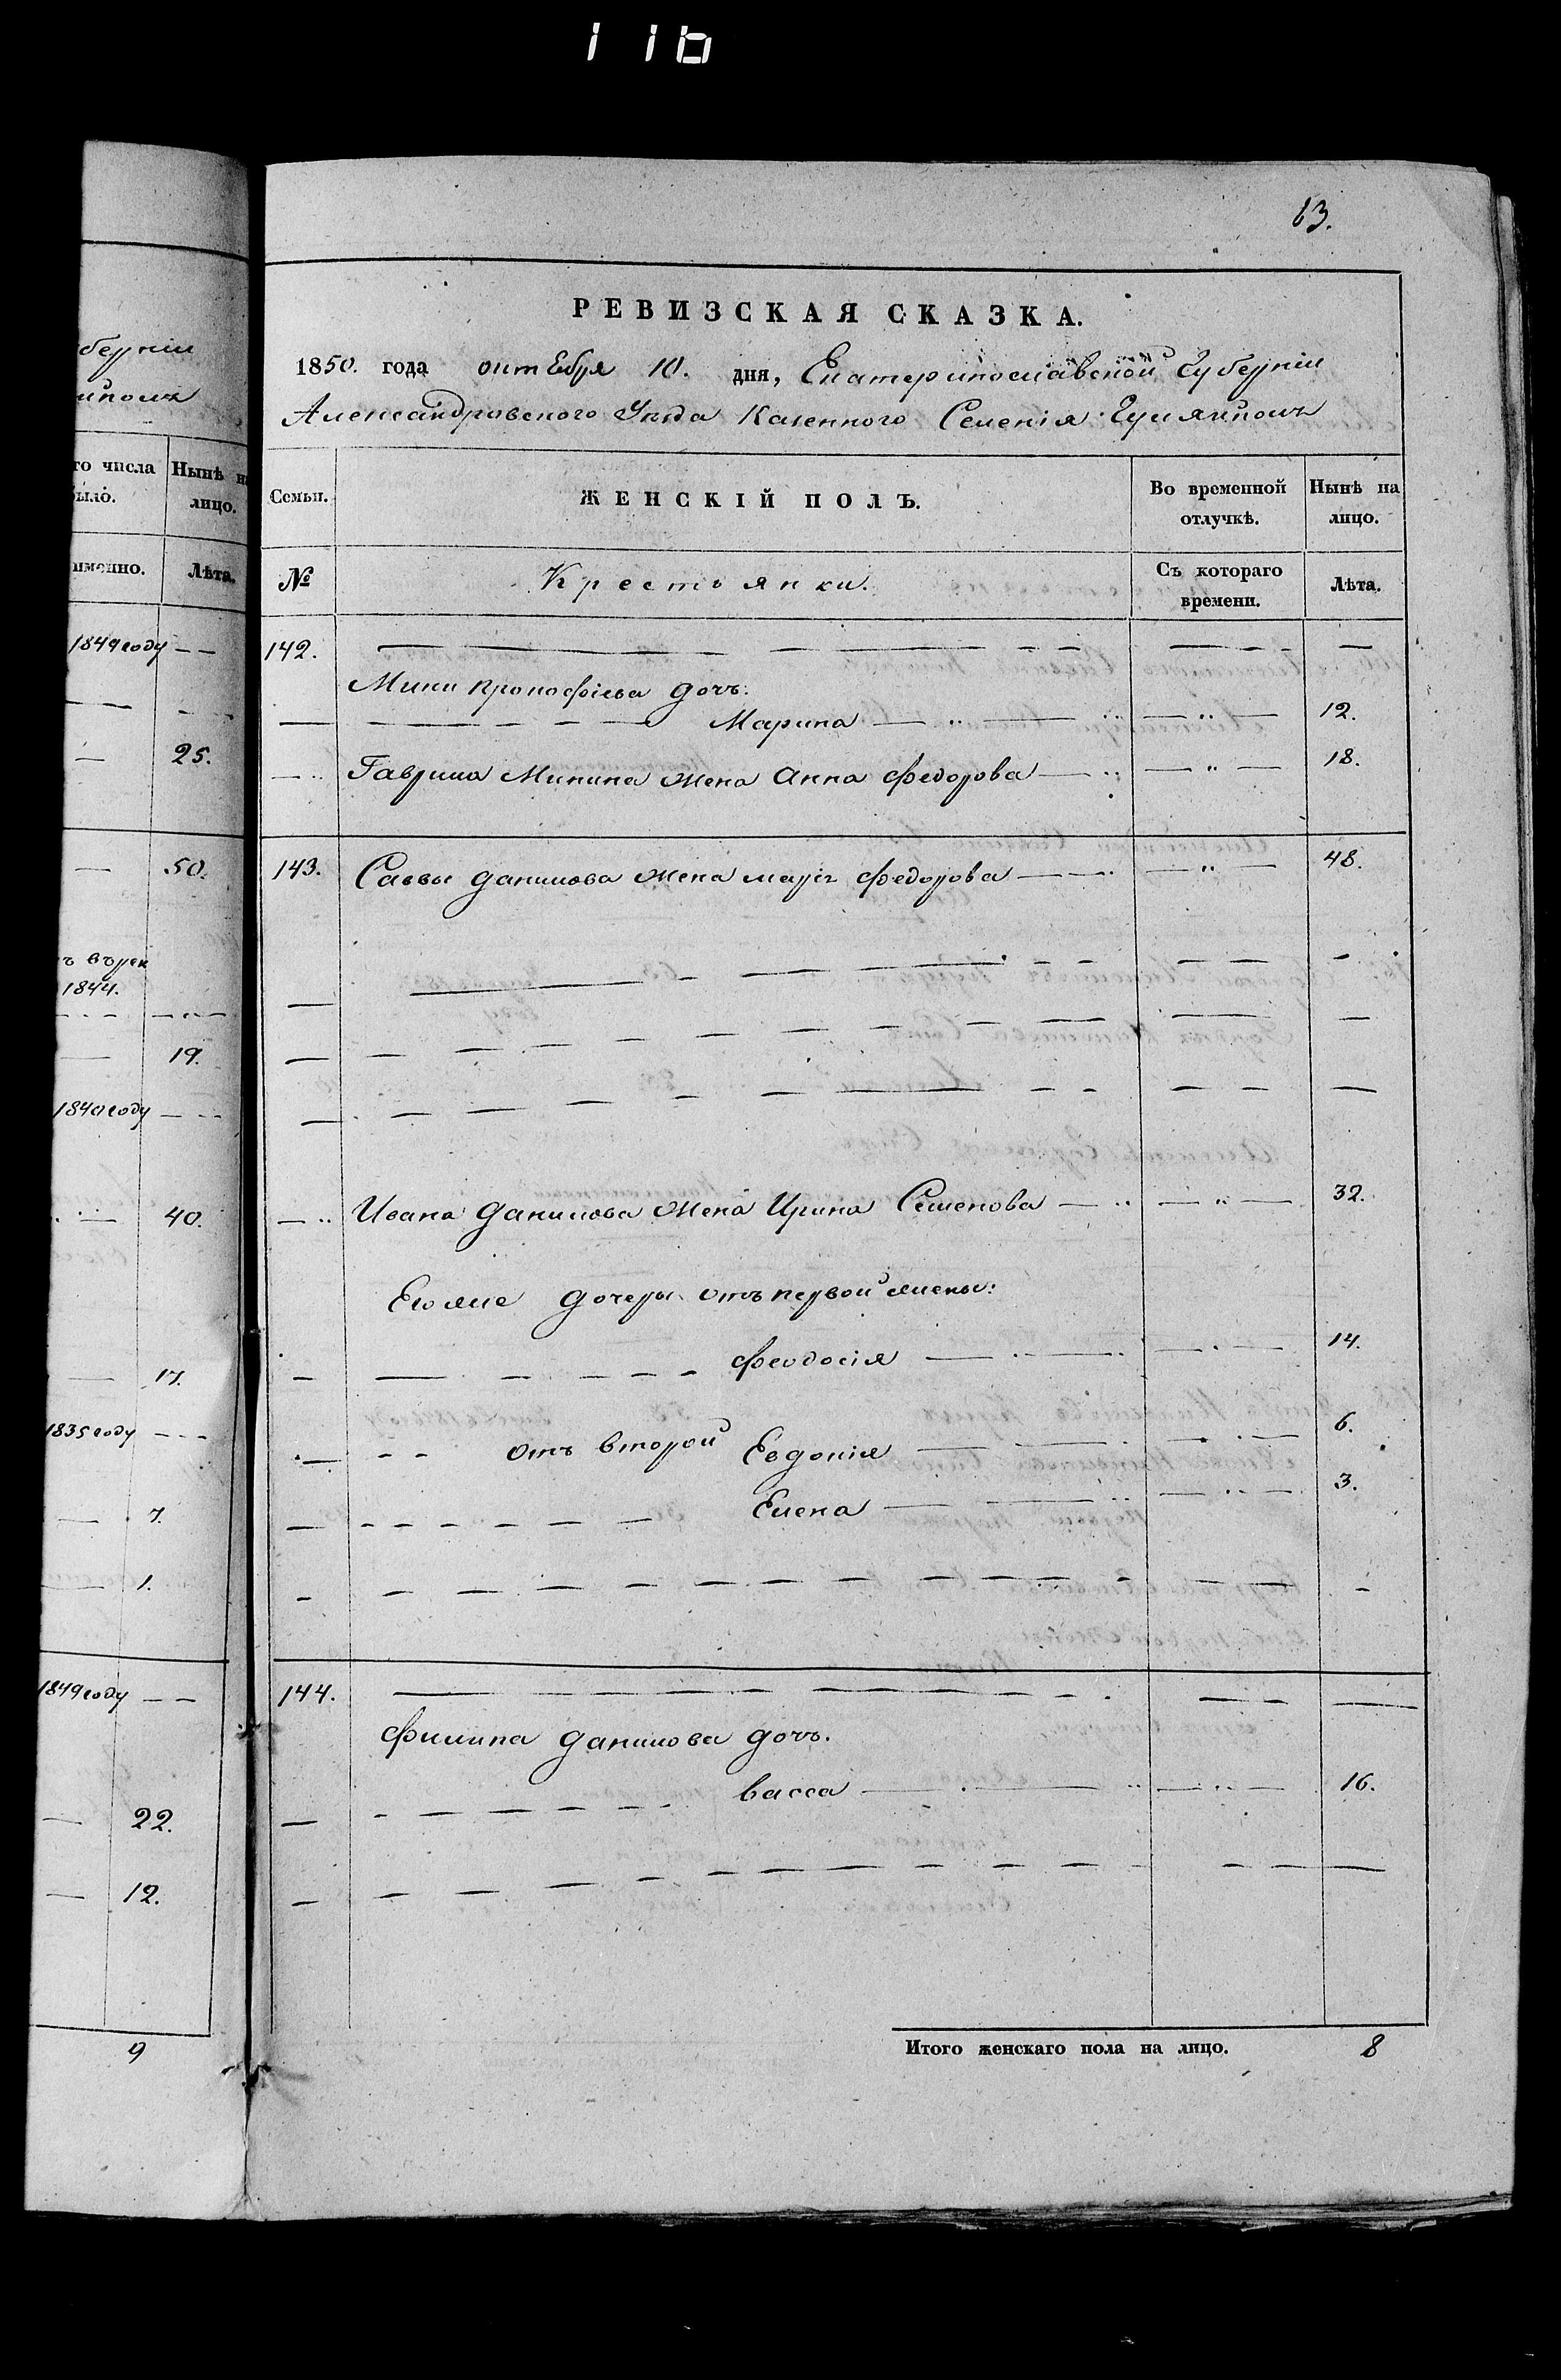 116
бернiи
13.
РЕВИЗСКАЯ СКАЗКА.
1850. года октября 10. дня, Екатеринославской Губернiи
Александровского Уѣзда Казенного Селенiя Гуляйполь
го числа
было.
Нынѣ на
лицо.
именно.
Лѣта.
Семьи.
ЖЕНСКIЙ ПОЛЪ.
Во временной
отлучкѣ.
Нынѣ на
лицо.
№
Крестьянки.
Съ котораго
времени.
Лѣта.
1849 году — —
— 25.
— 50.
1844.
— 19.
1840 году — —
— 40.
— 17.
1835 году — — —
— 7.
— 1.
1849 году — —
— 22.
— 12.
9
142. — — — — — —
Мины Прокофiева дочь:
— — — — Марина — " — — " — 12.
— " Гаврила Минина жена Анна Федорова — " — " — 18.
143. Саввы Данилова жена марiя Федорова — — " — " — 48.
— " Ивана Данилова жена Ирина Семенова — " — " — 32.
Его же дочеры отъ первой жены:
— — — — — — — Феодосiя — — — — 14.
— — — отъ второй Евдокiя — — — — 6.
— — — — — — Елена — — — — 3.
144. — — — — — —
Филипа Данилова дочь.
— — — — — — васса — — — — 16.
Итого женскаго пола на лицо. 8